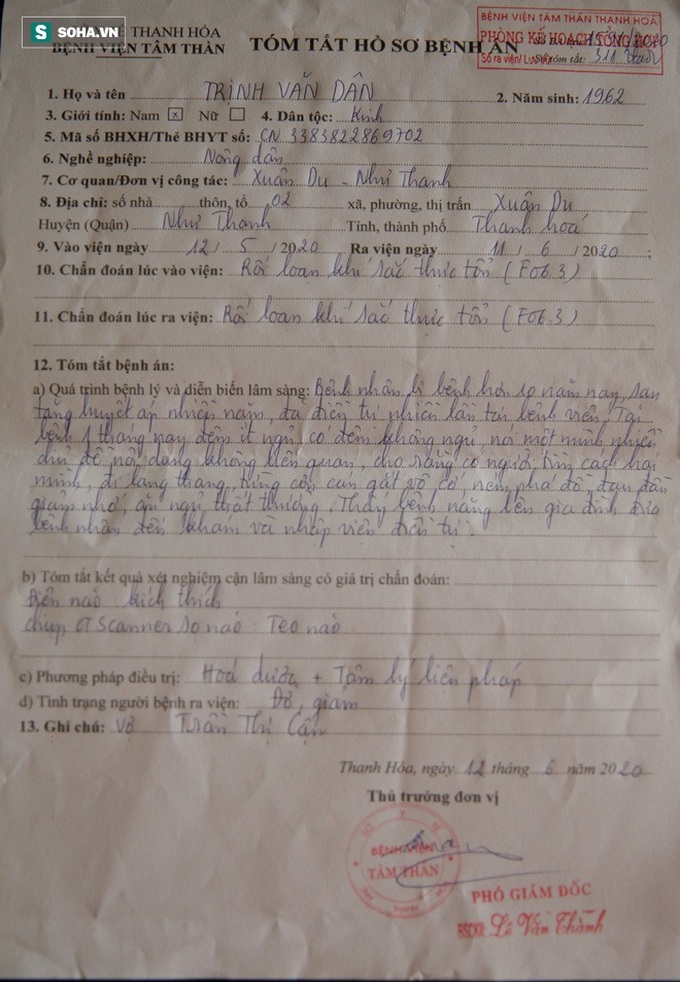 SOHA.VN
TẾ THANH HÓA
BỆNH VIỆN TÂM THẦN
TÓM TẮT HỒ SƠ BỆNH ÁN
BỆNH VIỆN TÂM THẦN THANH HOÁ
PHÒNG KẾ HOẠCH TỔNG HỢP
Số ra viện/ Lưu trữ
Số tóm tắt: 311
1. Họ và tên TRỊNH VĂN DÂN 2. Năm sinh: 1962
3. Giới tính: Nam ☒ Nữ ☐ 4. Dân tộc: Kinh
5. Mã số BHXH/Thẻ BHYT số: CN 3383822869702
6. Nghề nghiệp: Nông dân
7. Cơ quan/Đơn vị công tác: Xuân Du - Như Thanh
8. Địa chỉ: số nhà thôn, tổ 02 xã, phường, thị trấn Xuân Du
Huyện (Quận) Như Thanh Tỉnh, thành phố Thanh hoá
9. Vào viện ngày 12 / 5 / 2020 Ra viện ngày 11 / 6 / 2020 ;
10. Chẩn đoán lúc vào viện: Rối loạn khí sắc thực tổn (F06.3)
11. Chẩn đoán lúc ra viện: Rối loạn khí sắc thực tổn (F06.3)
12. Tóm tắt bệnh án:
a) Quá trình bệnh lý và diễn biến lâm sàng: Bệnh nhân bị bệnh hơn 10 năm nay, sau
tăng huyết áp nhiều năm, đã điều trị nhiều lần tại bệnh viện. Tại
bệnh 1 tháng nay đêm ít ngủ, có đêm không ngủ, nói một mình nhiều
chủ đề nội dung không liên quan, cho rằng có người tìm cách hại
mình, đi lang thang, từng cơn, cáu gắt vô cớ, ném phá đồ, đau đầu
giảm nhớ, ăn ngủ thất thường. Thấy bệnh nặng lên gia đình đưa
bệnh nhân đến khám và nhập viện điều trị.
b) Tóm tắt kết quả xét nghiệm cận lâm sàng có giá trị chẩn đoán:
Điện não: kích thích
Chụp CT Scanner sọ não: Teo não
c) Phương pháp điều trị: Hoá dược + Tâm lý liệu pháp
d) Tình trạng người bệnh ra viện: Đỡ, giảm
13. Ghi chú: Vợ Trần Thị Cận
Thanh Hóa, ngày 12 tháng 6 năm 2020
Thủ trưởng đơn vị
BỆNH VIỆN
TÂM THẦN
PHÓ GIÁM ĐỐC
BSCKII Lê Văn Thành